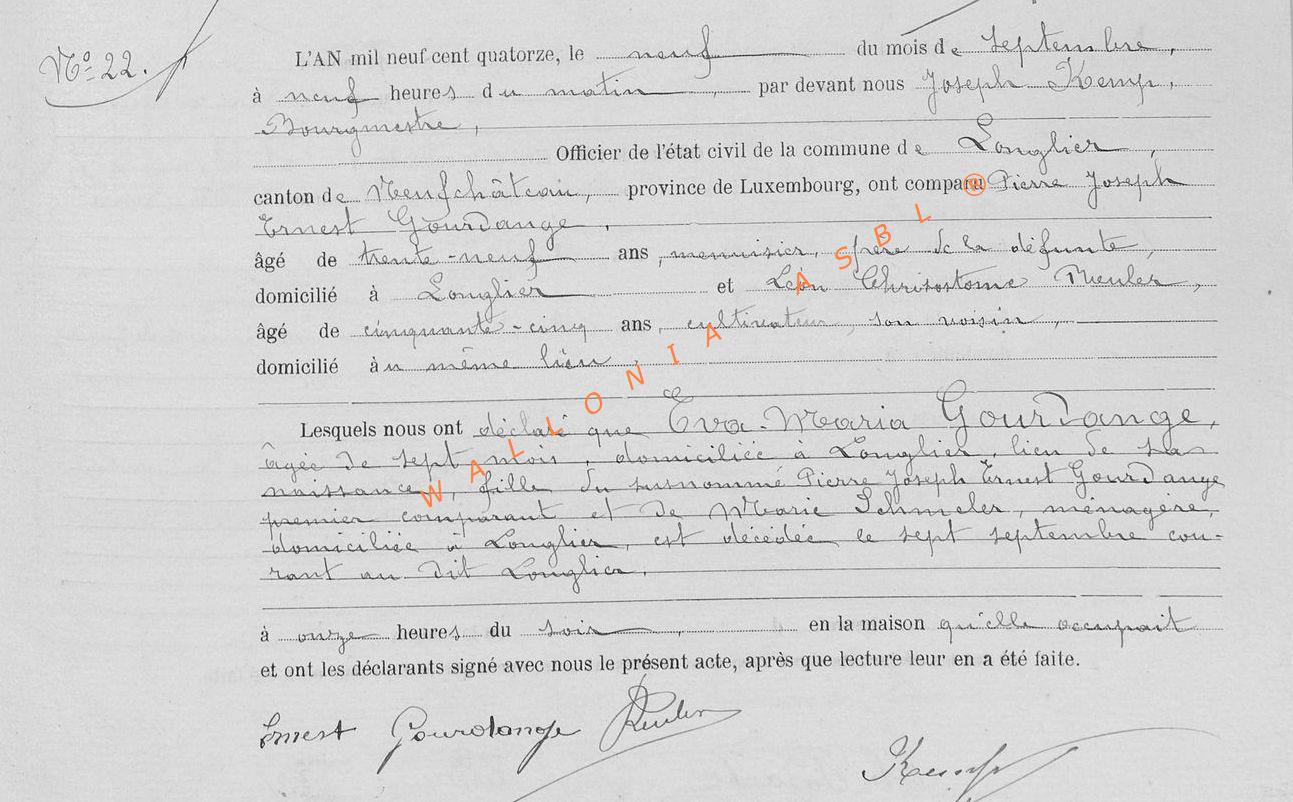 Nº 22.
L'AN mil neuf cent quatorze, le neuf du mois de septembre,
à neuf heures du matin, par devant nous Joseph Kemp,
Bourgmestre,
Officier de l'état civil de la commune de Longlier,
canton de Neufchâteau, province de Luxembourg, ont comparu Pierre Joseph
Ernest Gourdange,
âgé de trente-neuf ans, menuisier, père de la défunte,
domicilié à Longlier et Léon Chrisostome Reuler,
âgé de cinquante-cinq ans, cultivateur, son voisin,
domicilié au même lieu,
Lesquels nous ont déclaré que Eva-Maria Gourdange,
âgée de sept mois, domiciliée à Longlier, lieu de sa
naissance, fille du susnommé Pierre Joseph Ernest Gourdange
premier comparant et de Marie Schmeler, ménagère,
domiciliée à Longlier, est décédée le sept septembre cou-
rant au dit Longlier.
à onze heures du soir, en la maison qu'elle occupait
et ont les déclarants signé avec nous le présent acte, après que lecture leur en a été faite.
Ernest Gourdange Reuler
Kemp
WALLONIA ASBL ®